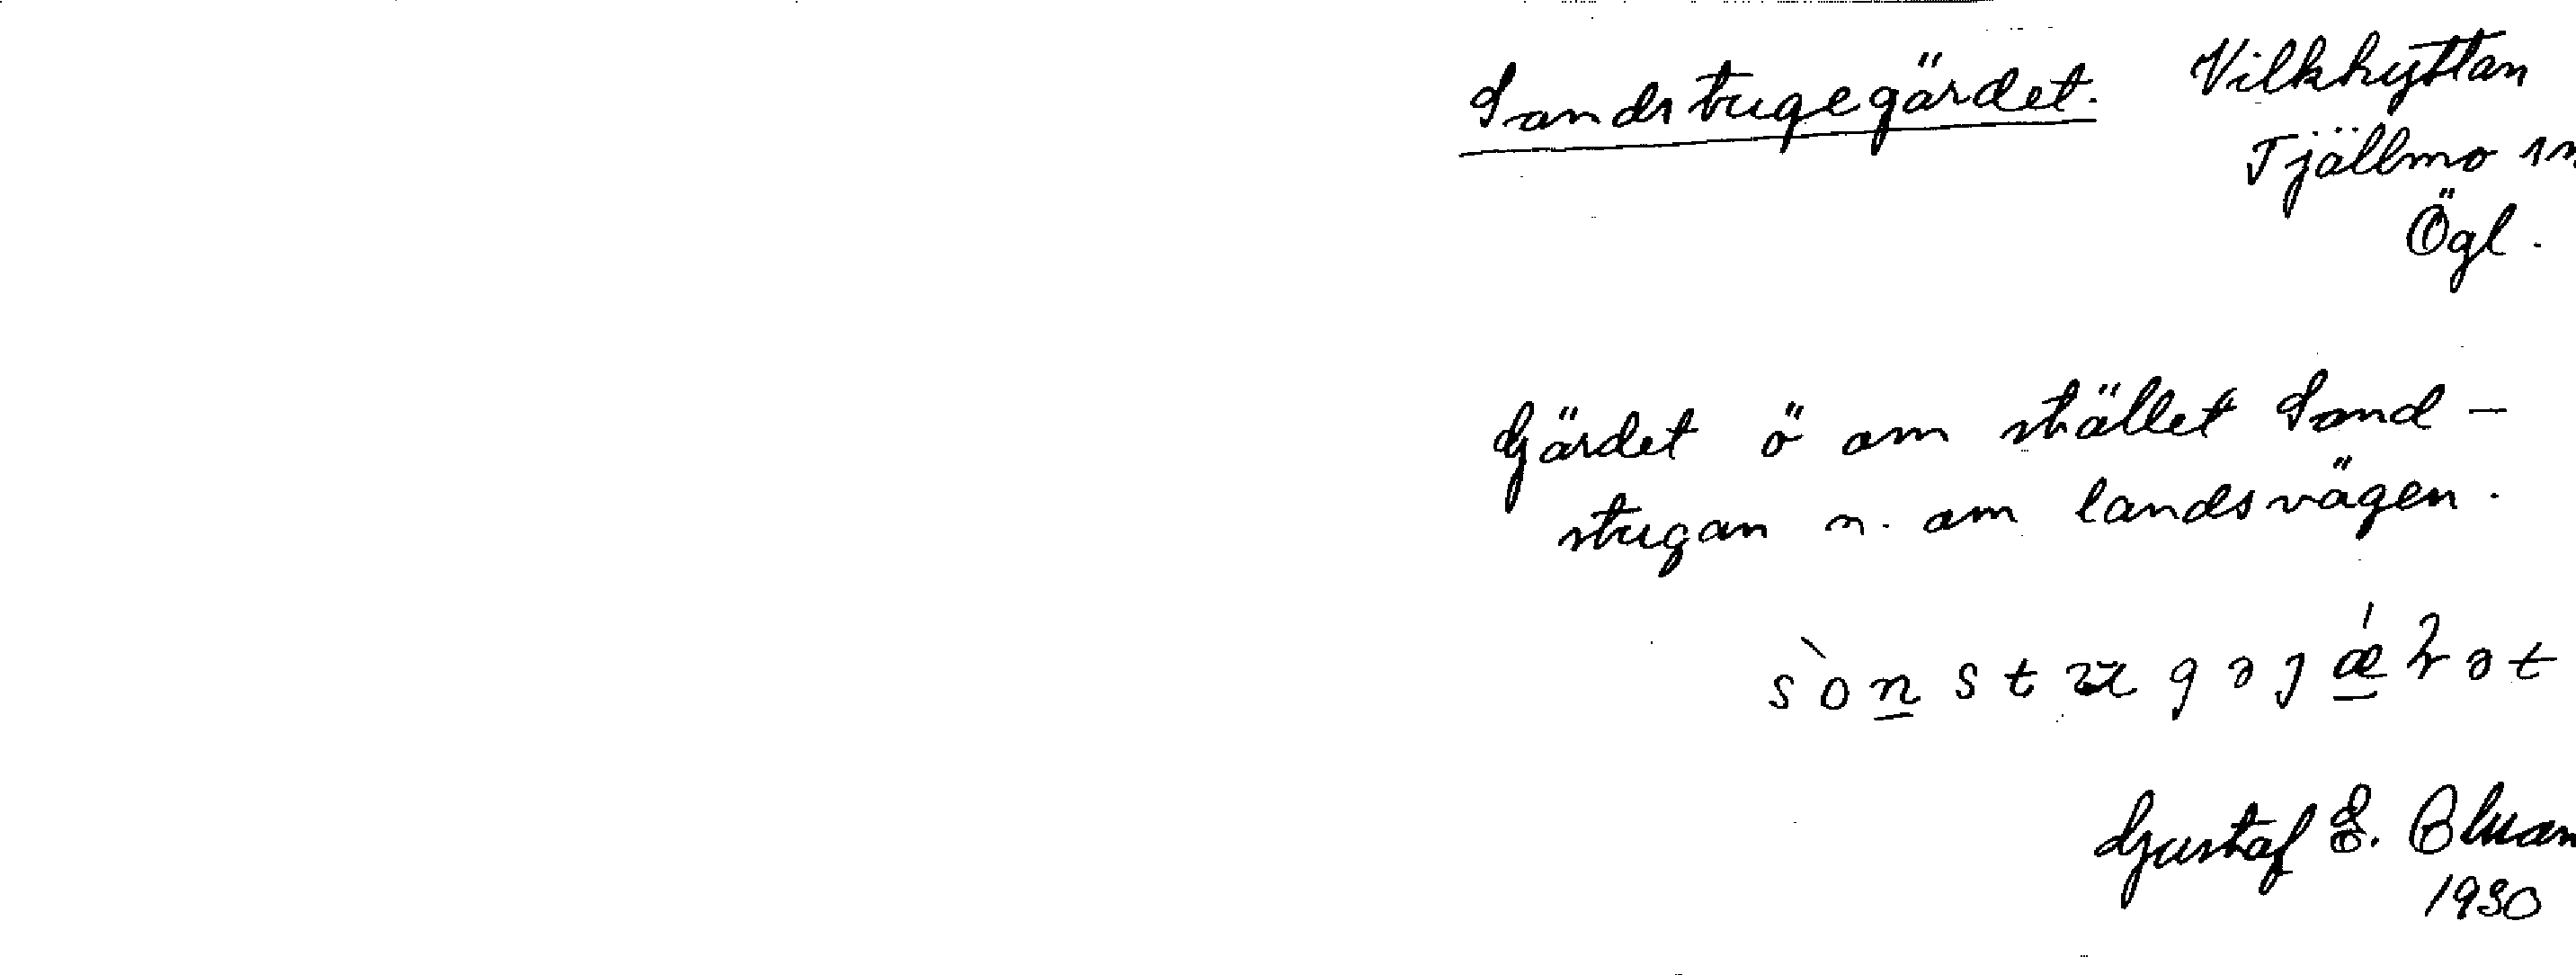 Sandstugegärdet. Vilkhyttan
Tjällmo sn
Ögl.
Gärdet ö om stället Sand-
stugan n. om landsvägen.
Gustaf E.
1930